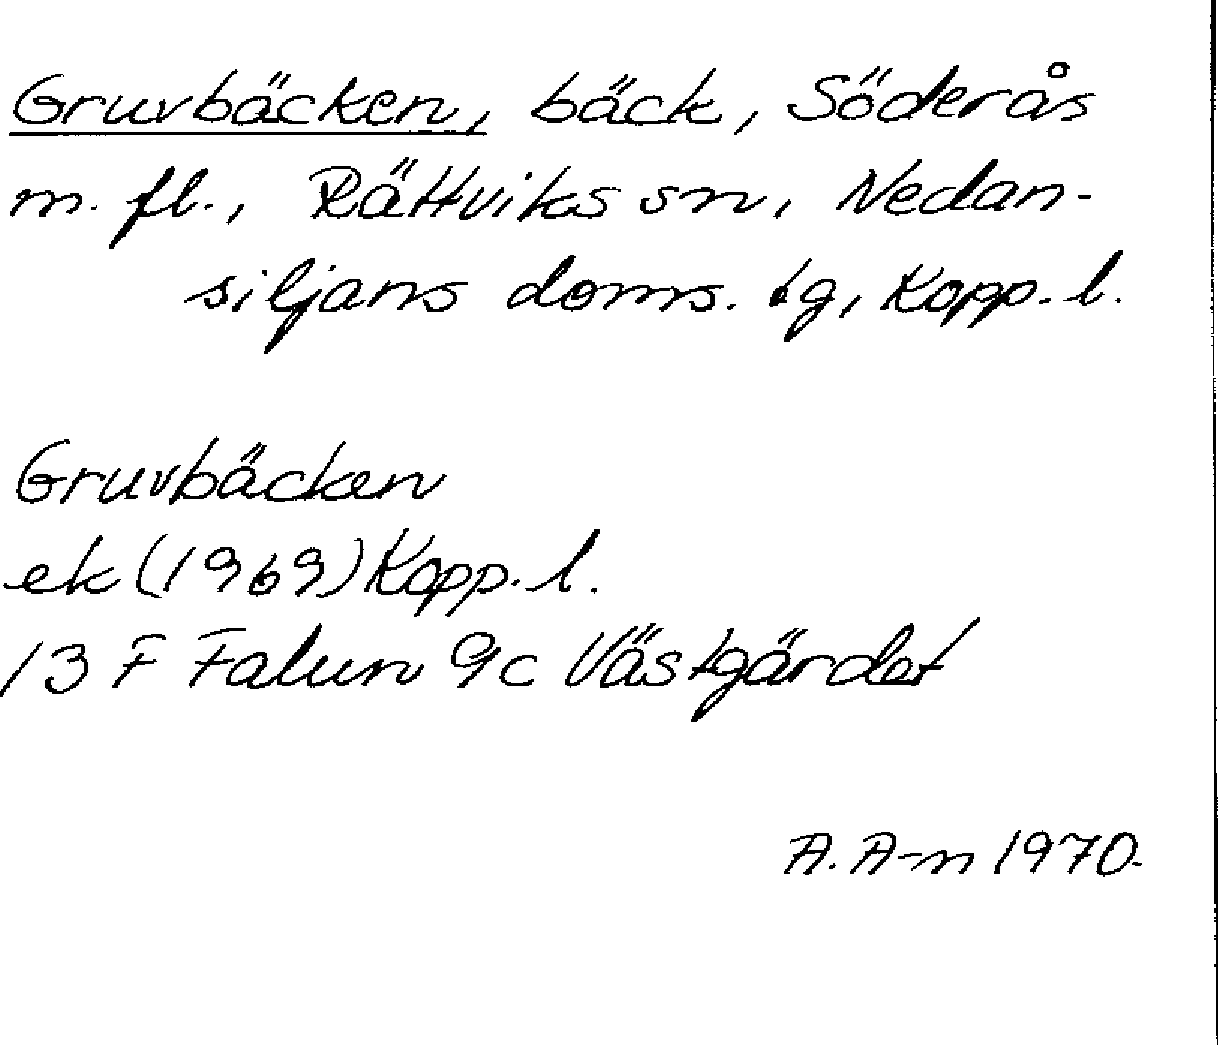 Gruvbäcken, bäck, Söderås
m. fl., Rättviks sn, Nedan-
siljans doms. tg, Kopp. l.
Gruvbäcken
ek (1969) Kopp. l.
13 F Falun 9c Västgärdet
A. A-n 1970.